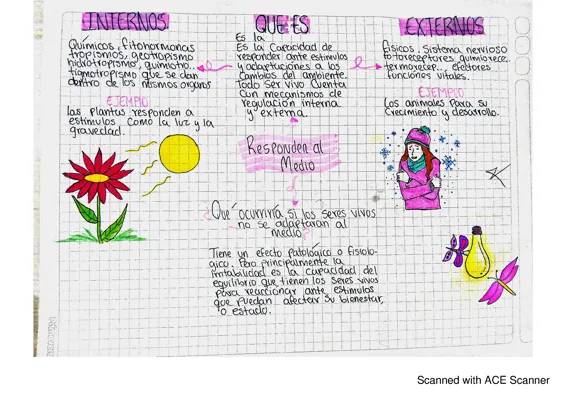 INTERNOS
Químicos, fitohormonas
tropismos, geotropismo
hidrotropismo, quimiotro..
tigmotropismo que se dan
dentro de los mismos organos
EJEMPLO
las plantas responden a
estimulos como la luz y la
gravedad.
QUE ES
Es la
Es la Capacidad de
responder ante estimulos
y adaptaciones a los
Cambios del ambiente.
Todo Ser vivo Cuenta
Con mecanismos de
regulación interna
y externa.
EXTERNOS
Fisicos, Sistema nervioso
fotoreceptores, quimiorece..
termorecep.., efectores
funciones vitales.
EJEMPLO
Los animales para su
Crecimiento y desarrollo.
Responden al
Medio
Qué ocurriría si los Seres vivos
no se adaptaran al
medio
Tiene un efecto patológico o fisiolo-
gico. Pero principalmente la
irritabilidad es la capacidad del
equilibrio que tienen los seres vivos
para reaccionar ante estimulos
que puedan afectar su bienestar,
o estado.
Scanned with ACE Scanner